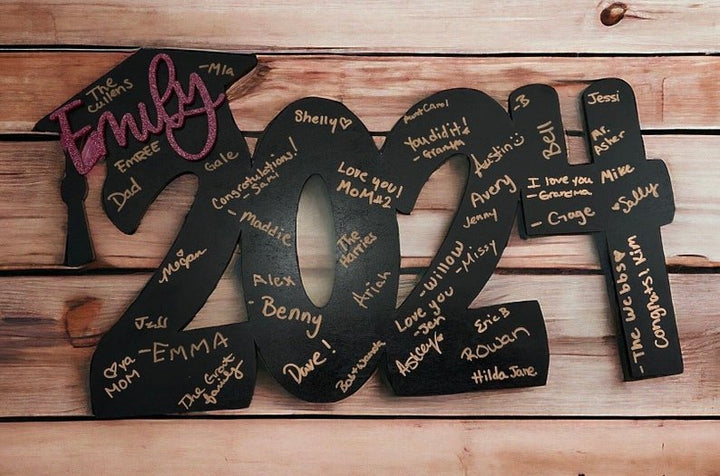 The
Cullens
-Mia
Emily
EMREE
Dad
Gale
Megan
Jeff
♡ya
MOM
-EMMA
The Grant
family
Shelly♡
Congratulations!
-Sam
-Maddie
Love you!
MOM#2
The
Harries
Alex
-Benny
Ariah
Dave!
Bart+Wanda
Aunt Carol
You did it!
-Grampa
Austin:)
Avery
Jenny
Willow
-Missy
Love you
-Jen
Ashley
Eric B
Rowan
Hilda Jane
-B
Bell
Jessi
Mr.
Asher
I love you
-Grandma
Mike
-Gage
♡Sally
-The Webbs♡
Congrats! Kim
2024